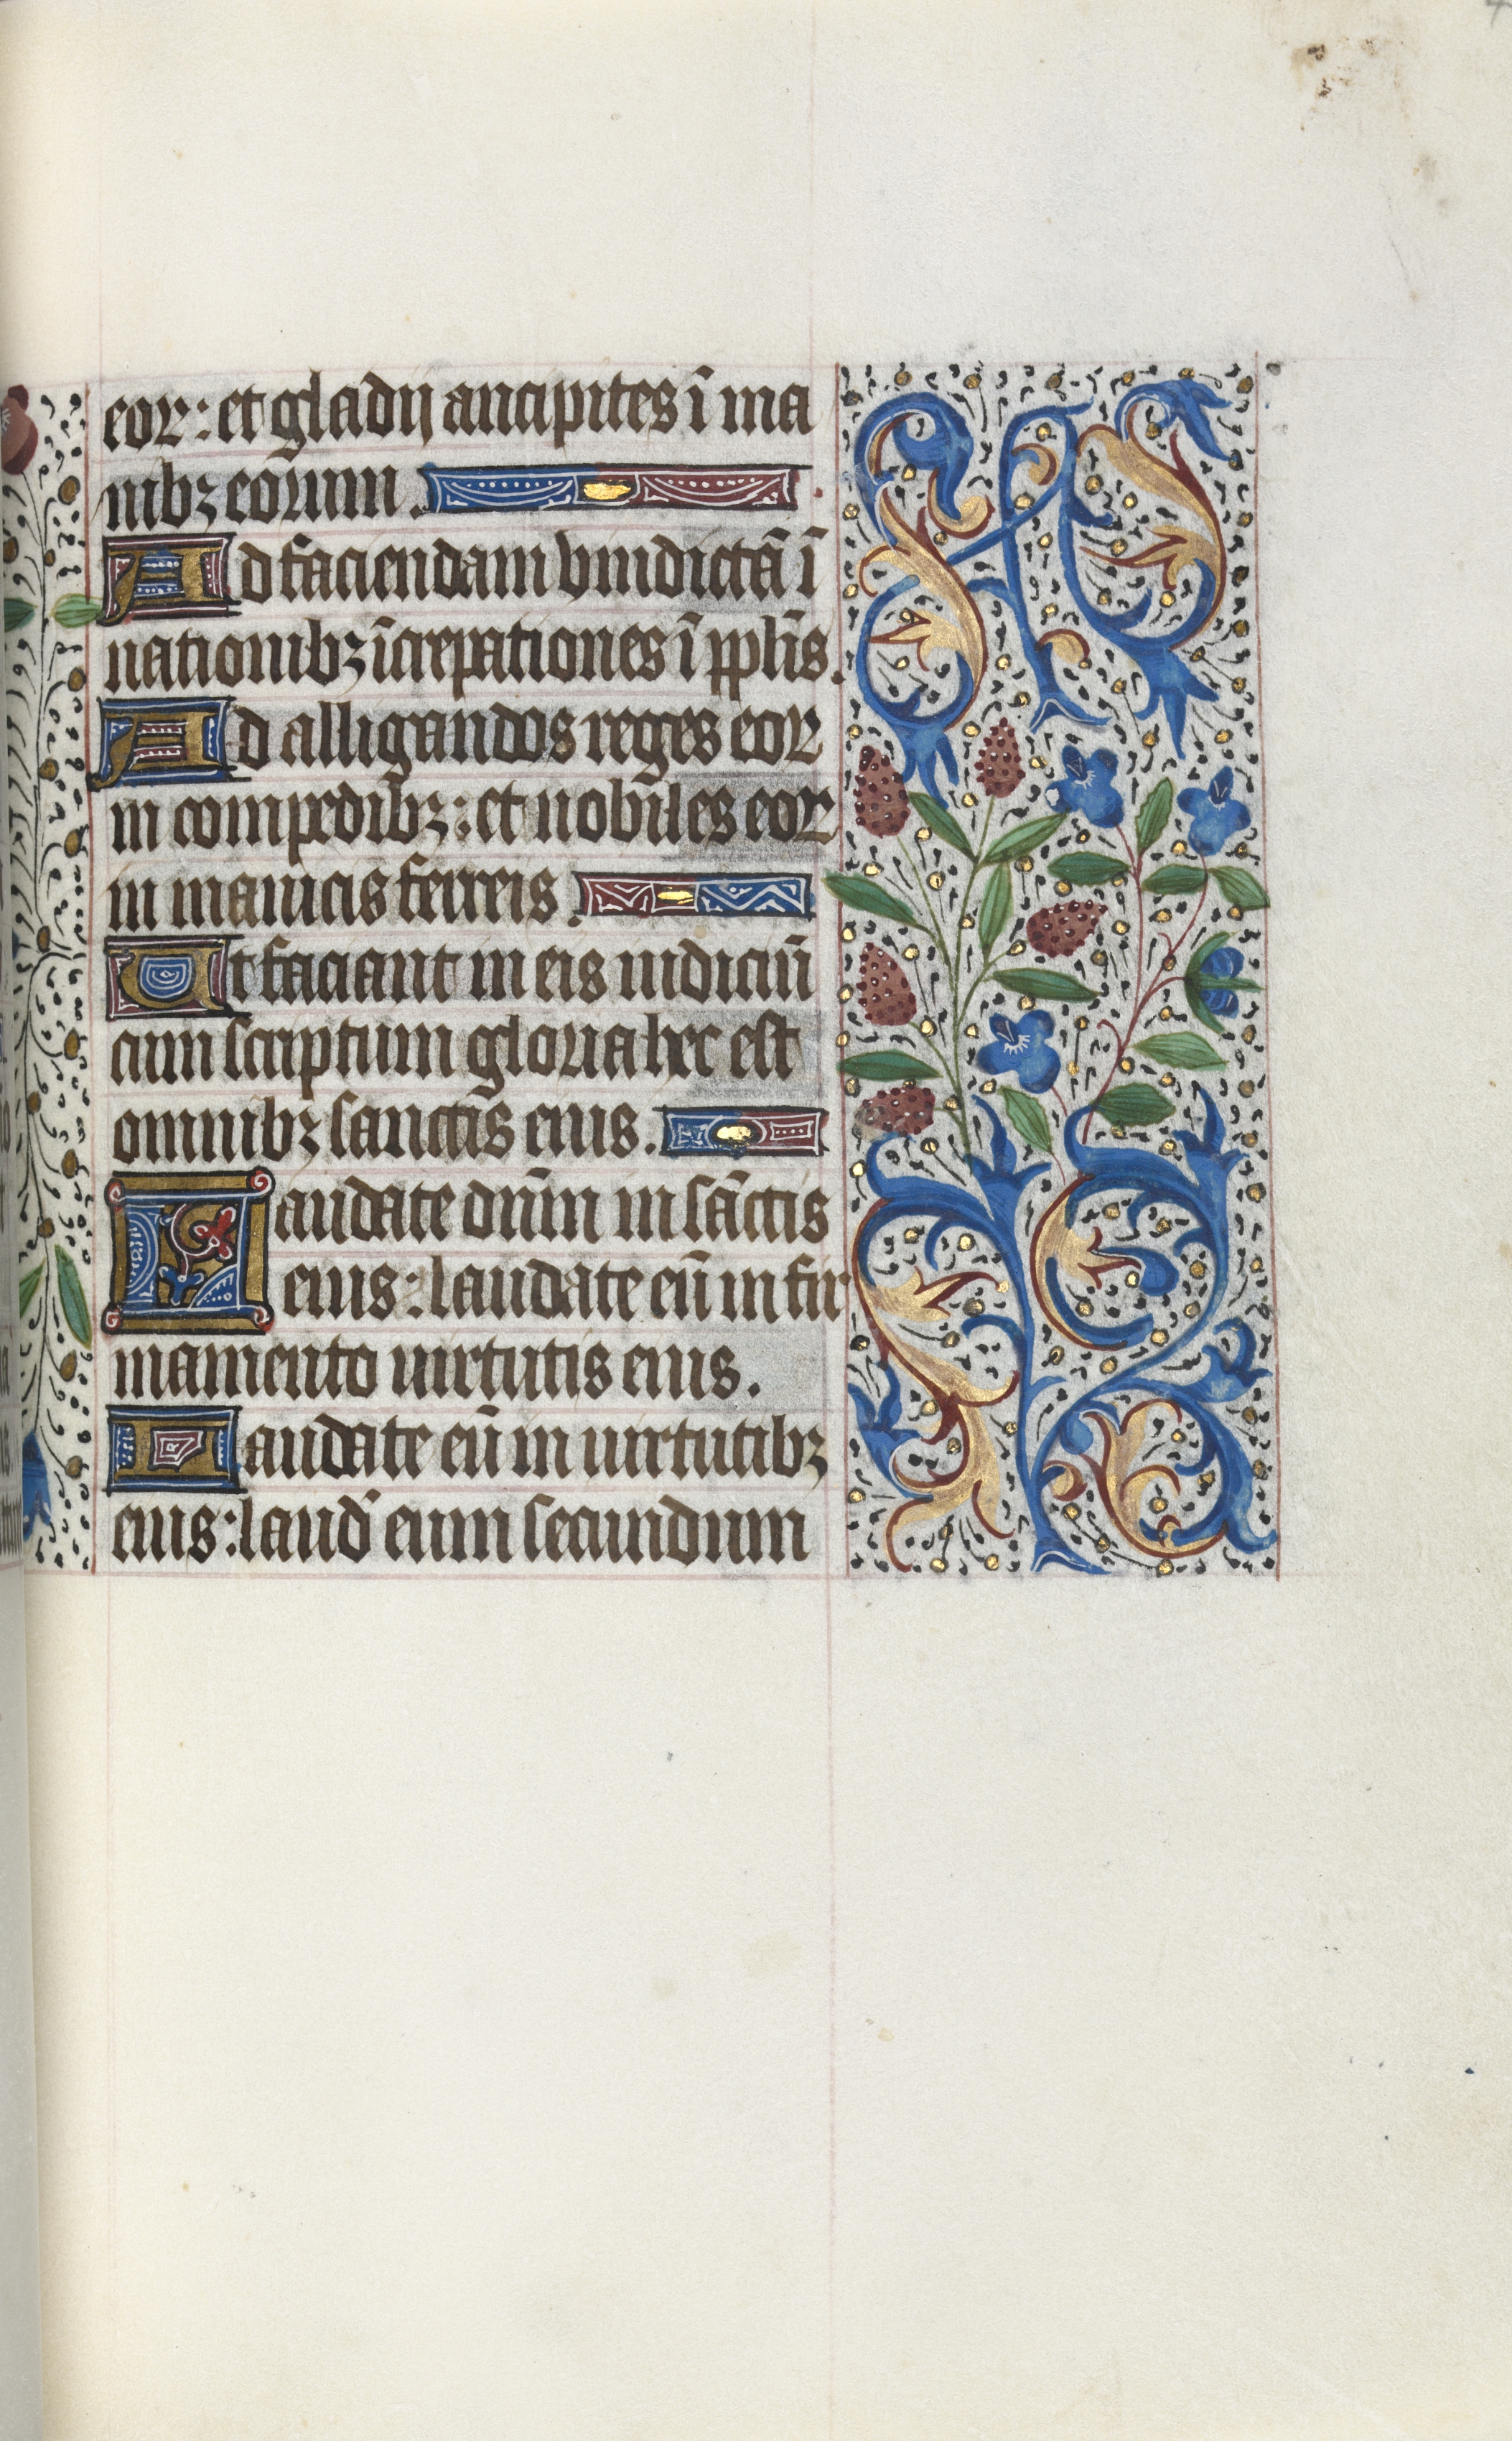 eoꝝ: et gladij ancipites ī ma
nibꝫ eorum.
Ad faciendam vindictā ī
nationibꝫ īcrepationes ī ppl̄is.
Ad alligandos reges eoꝝ
in compedibꝫ: et nobiles eoꝝ
in manicis ferreis.
Ut faciant in eis iudiciū
cum scriptum gloria hec est
omnibꝫ sanctis eius.
Laudate dn̄m in sāctis
eius: laudate eū in fir
mamento uirtutis eius.
Laudate eū in uirtutibꝫ
eius: laud' eum secundum